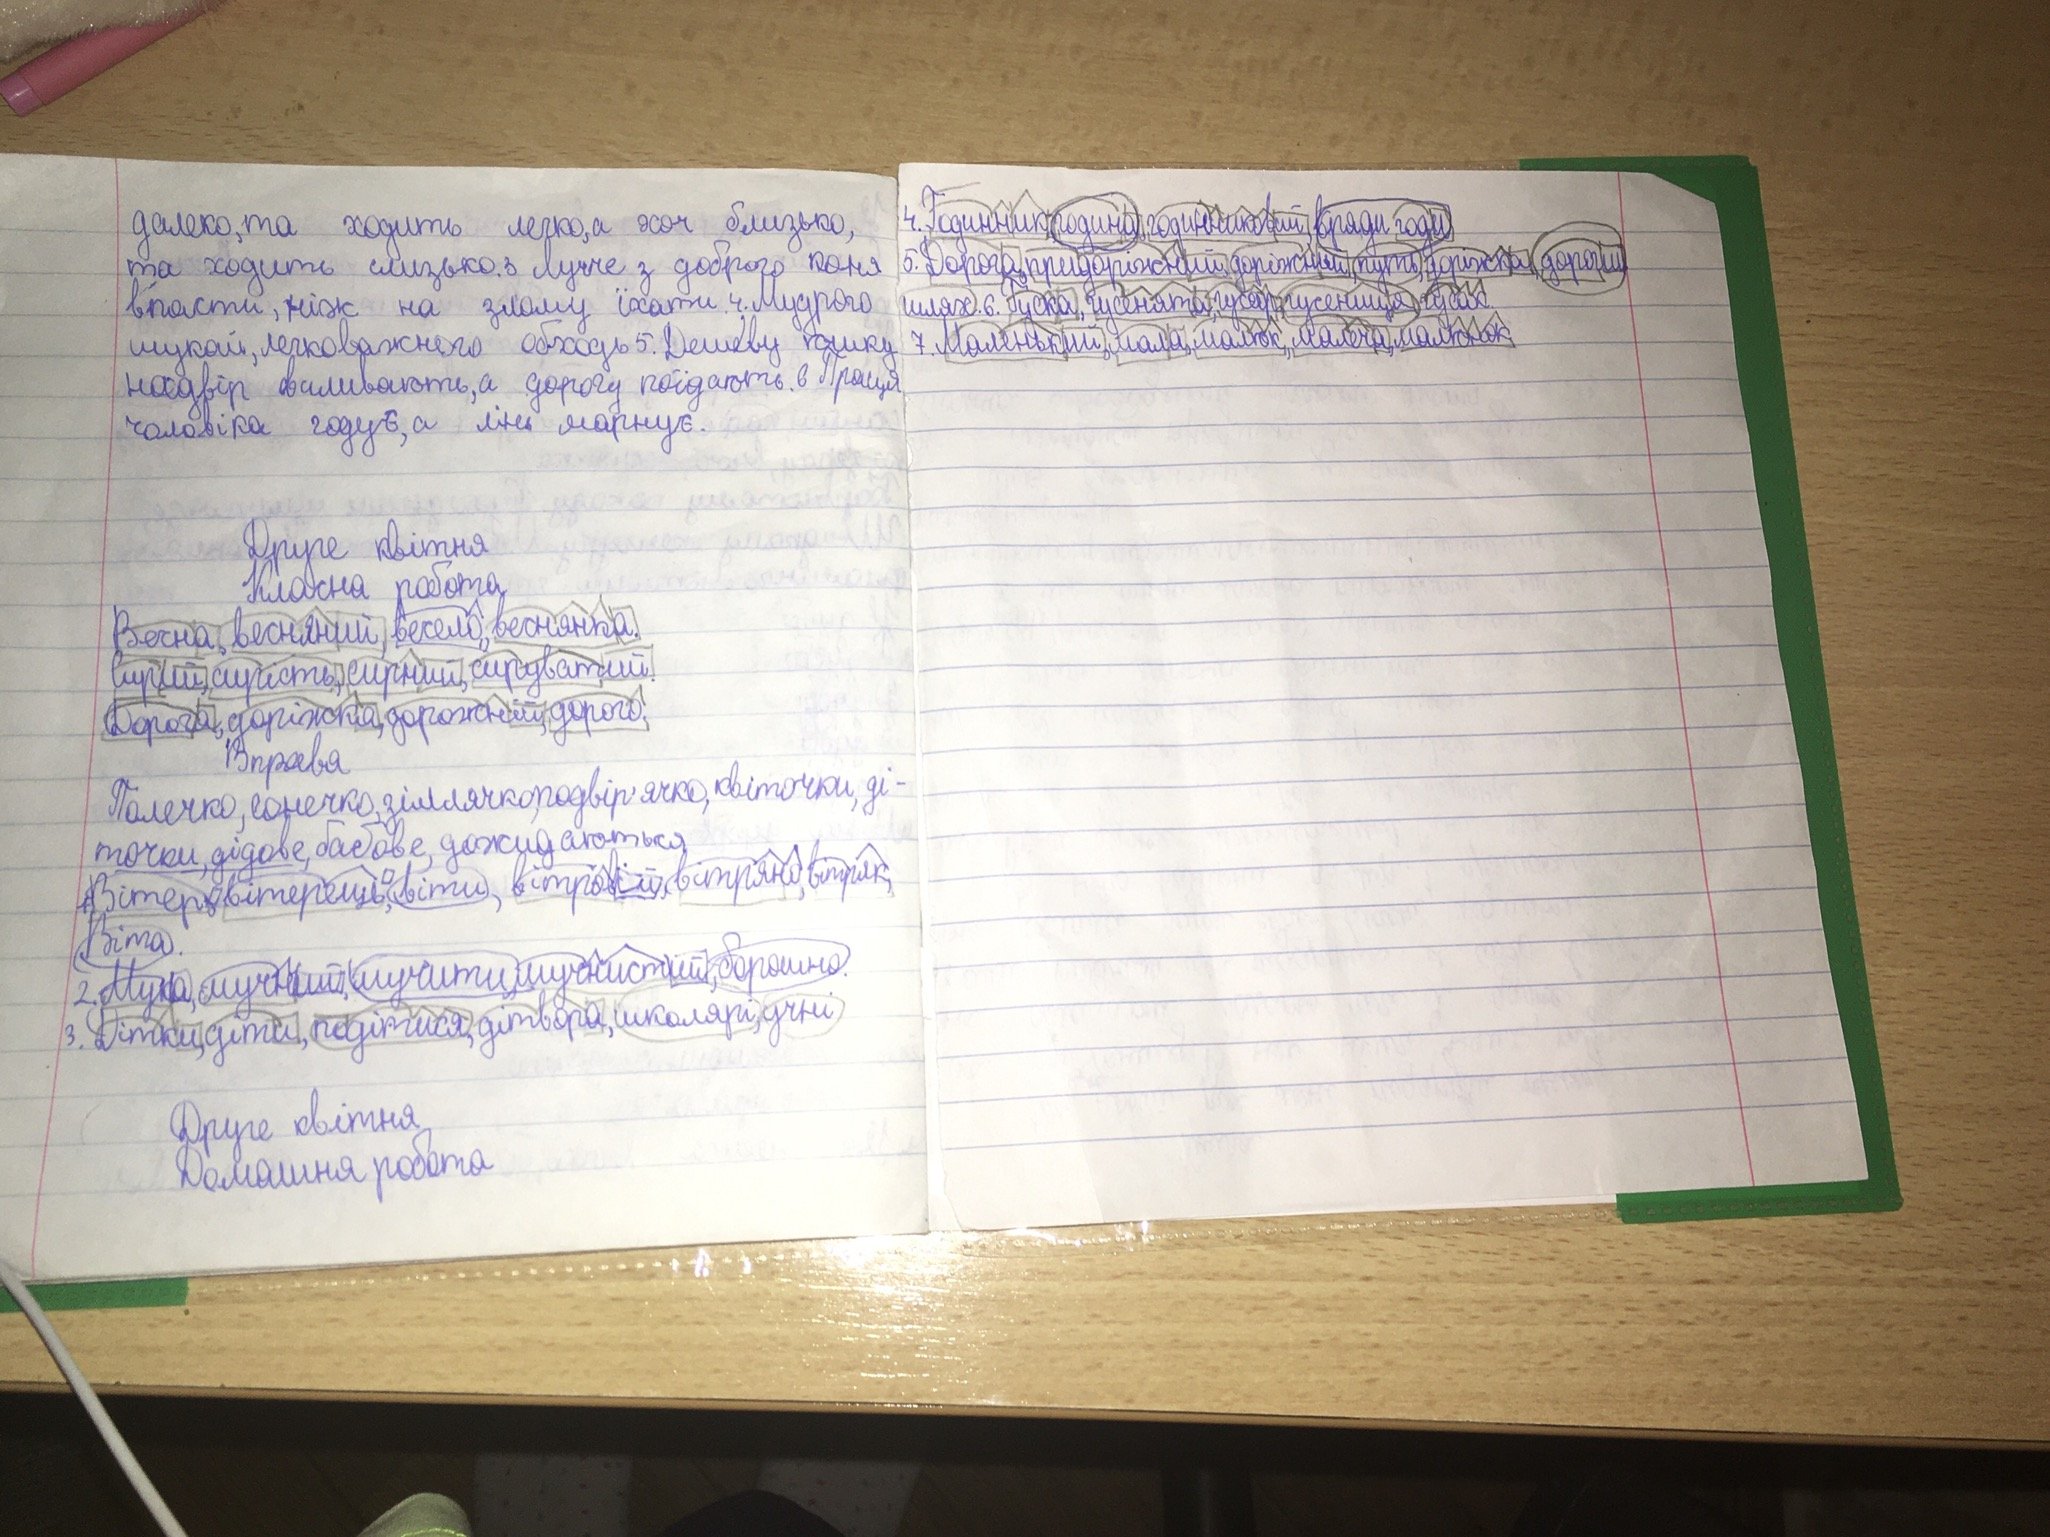 далеко, та ходить легко, а хоч близько,
та ходить слизько. 3 Лучче з доброго коня
впасти, ніж на злому їхати. 4. Мудрого
шукай, легковажнего обходь 5. Дешеву юшку
надвір виливають, а дорогу поїдають. 6 Праця
чоловіка годує, а лінь марнує.
Друге квітня
Класна робота
Весна, весняний, весело, веснянка.
Сирий, сирість, сирний, сируватий.
Дорога, доріжка, дорожній, дорого.
Вправа
Полечко, сонечко, зіллячко, подвір'ячко, квіточки, ді-
точки, дідове, бабове, дожидаються
1. Вітер, вітерець, віти, вітровій, вітряно, вітряк,
Віта.
2. Мука, мучний, мучити, мучнистий, борошно.
3. Дітки, діти,подітися, дітвора, школярі, учні
Друге квітня
Домашня робота
4. Годинник, година, годинниковий, вряди годи
5. Дорога, придоріжний, доріжний, путь, доріжка, дорогий
шлях. 6. Гуска, гусенята, гусяр, гусениця, гусак
7. Маленький, мала, малюк, малеча, малюнок